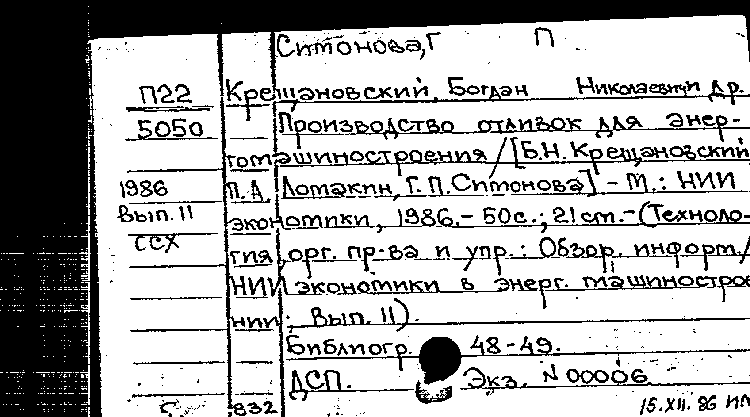 Симонова,Г П
П22 Крещановский, Богдан Николаевич и др.
5050 Производство отливок для энер-
гомашиностроения / [Б.Н. Крещановский
1986 П.А. Ломакин, Г.П. Симонова] - М.: НИИ
Вып. 11 экономики, 1986. - 50с.; 21 см. - (Техноло-
ССХ гия, орг. пр-ва и упр.: Обзор. информ./
НИИ экономики в энерг. машинострое
нии; Вып. 11).
Библиогр. 48-49.
ДСП. Экз. N 00006
832 15.XII.86